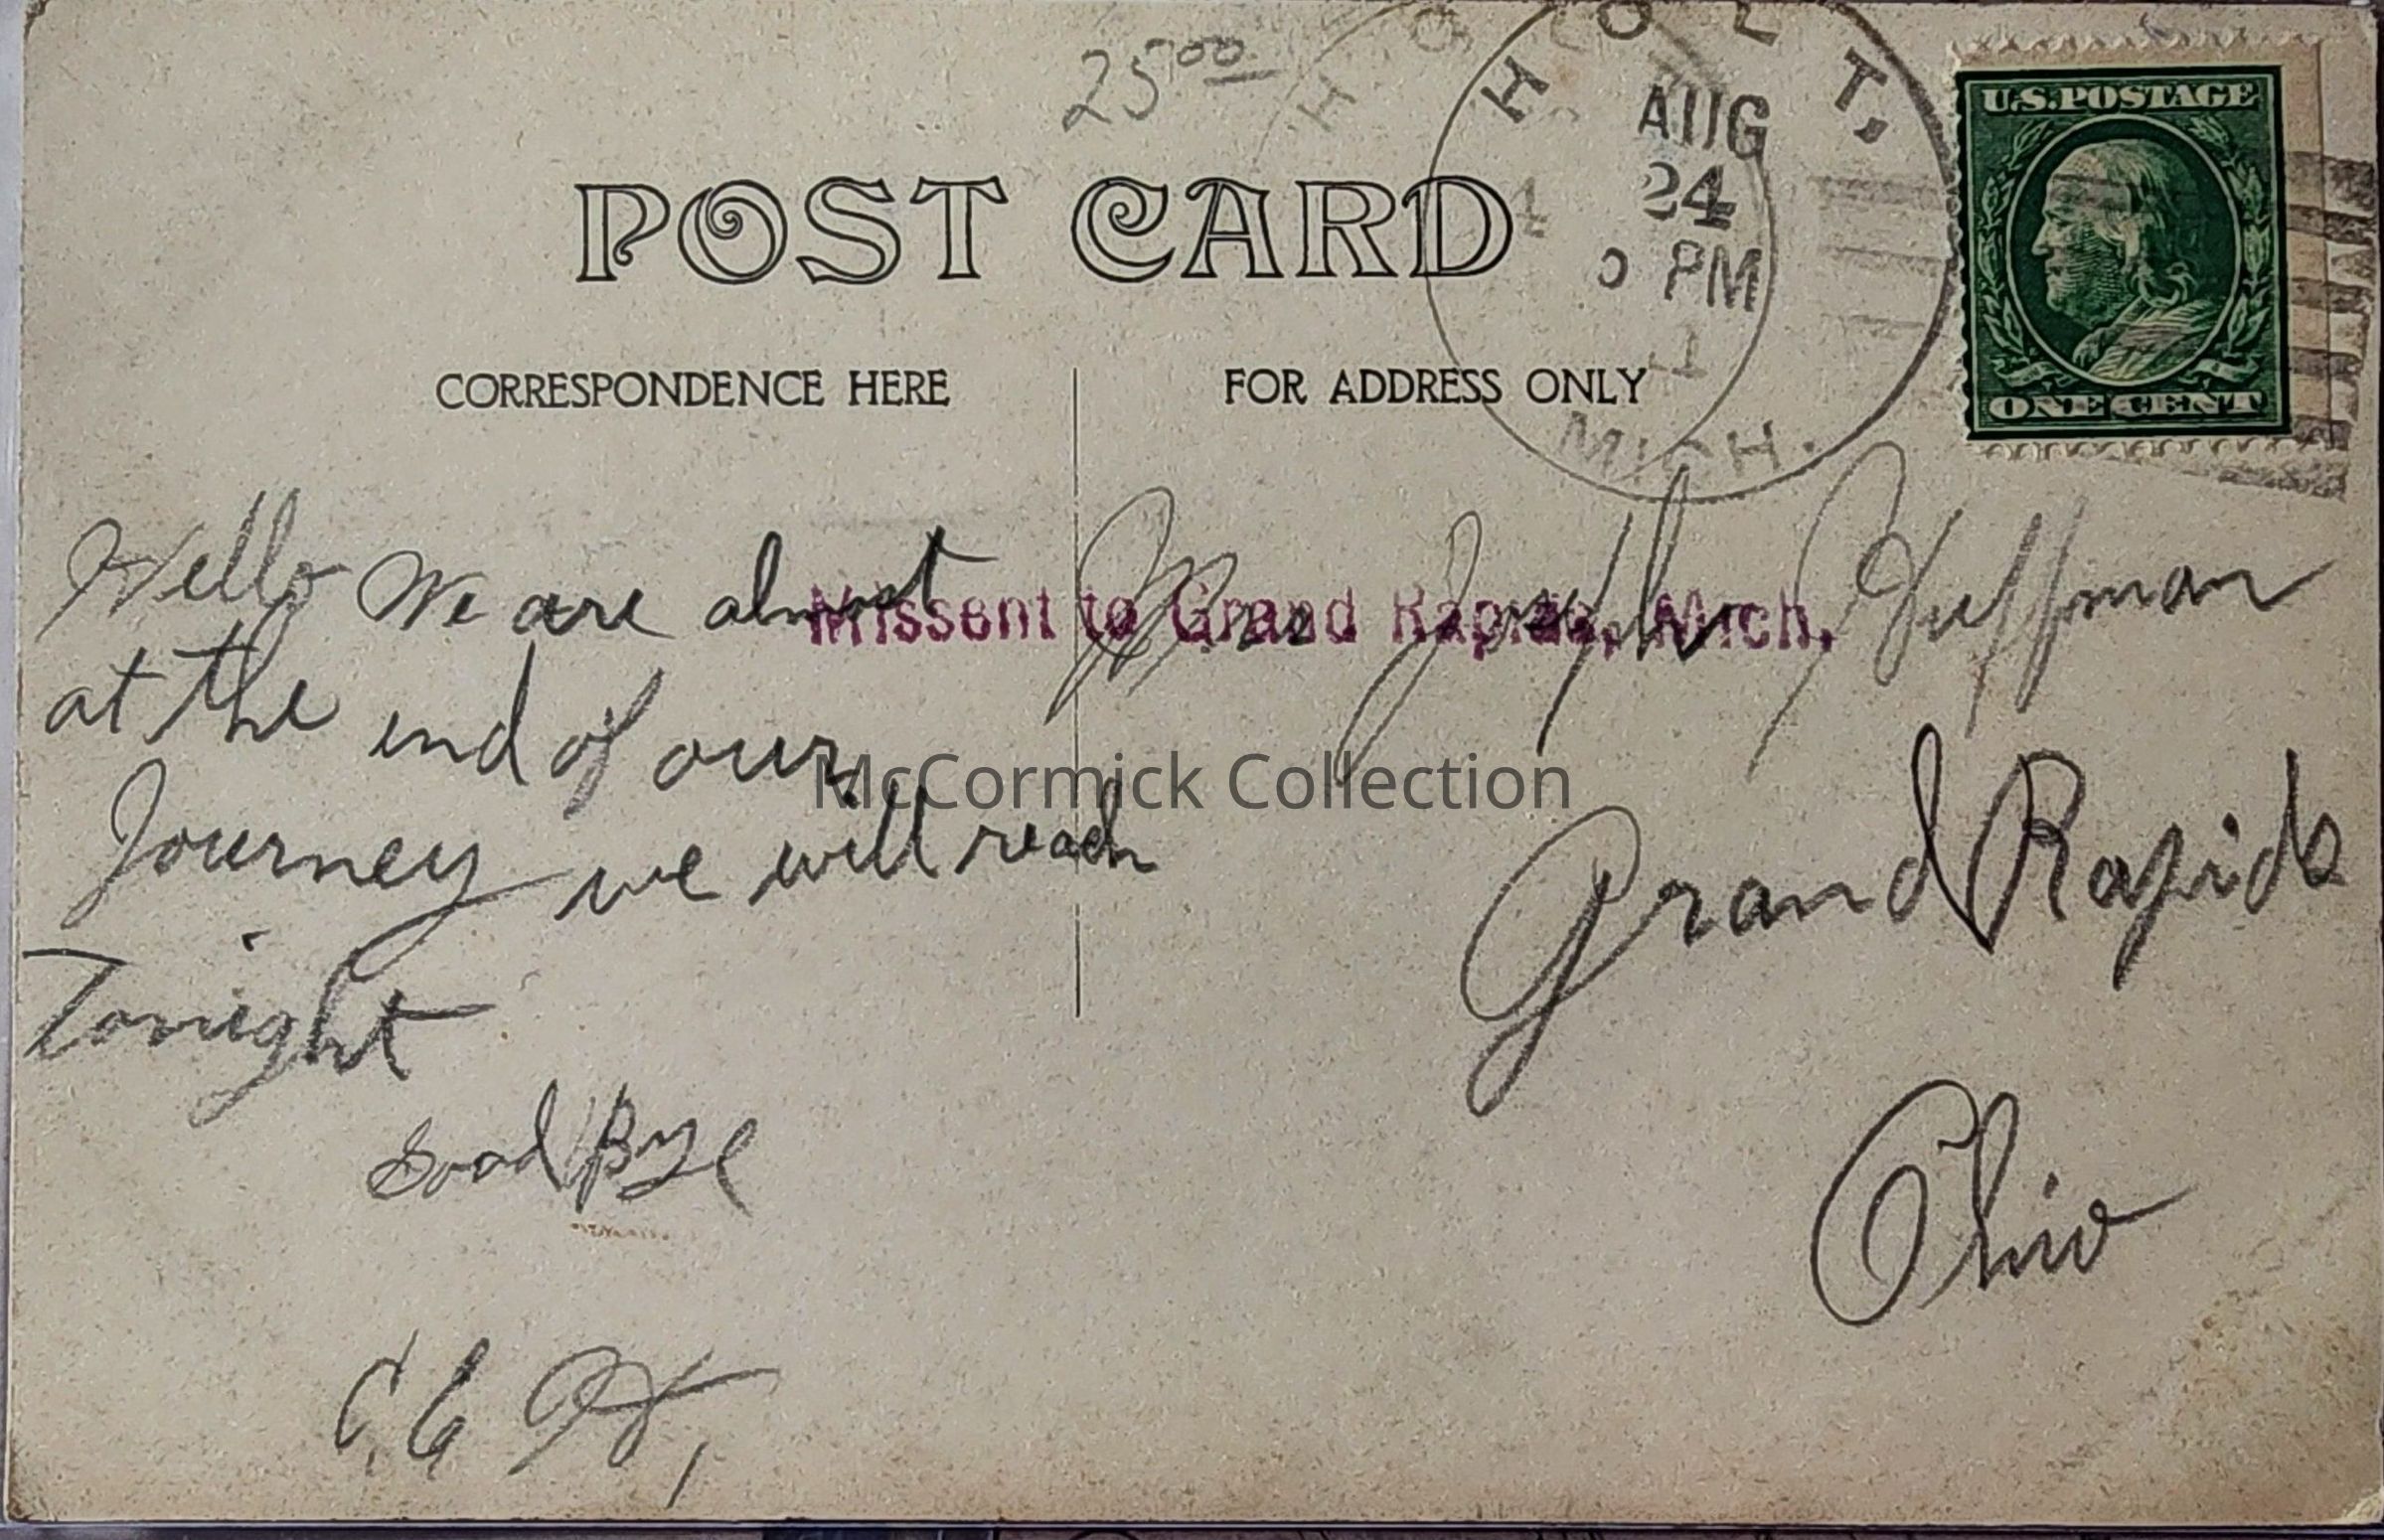 25.00
HOLT,
AUG
24
PM
1
MICH.
U.S. POSTAGE
ONE CENT
POST CARD
CORRESPONDENCE HERE
FOR ADDRESS ONLY
Hello We are almost
at the end of our
Journey we will reach
Tonight
Good Bye
C. C. H,
Missent to Grand Rapids, Mich.
Mrs Joseph Huffman
Grand Rapids
Ohio
McCormick Collection